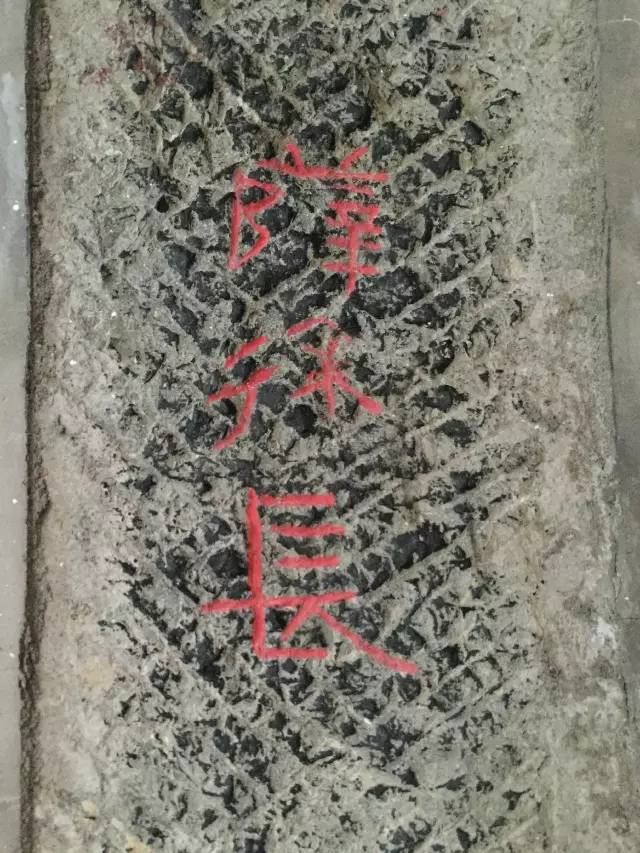 障
孫
長